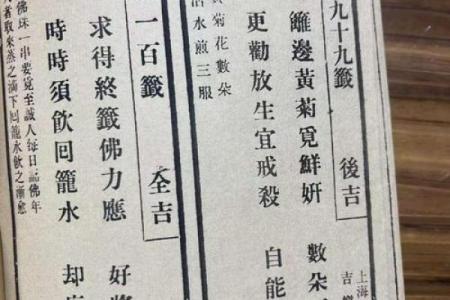 九十九籤 後吉
上海
吉
籬邊黃菊覓鮮妍 數朵
更勸放生宜戒殺 自能
黃菊花數朵
活水煎三服
一百籤 全吉
求得終籤佛力應 好
時時須飲囘籠水 却
佛珠一串要覓至誠人每日 佛年
者取來蒸之滴下囘籠水飲之漸愈